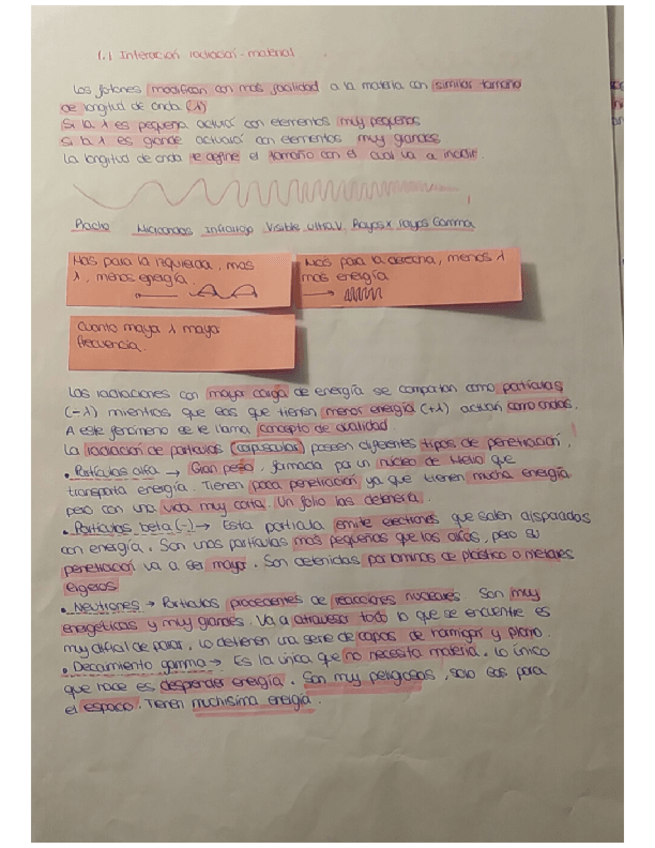 1.1 Interacion radiacion-material
Los fotones modifican con mas facilidad a la materia con similar tamaño
de longitud de onda (λ)
Si la λ es pequeña actua con elementos muy pequeños
si la λ es grande actuara con elementos muy grandes
La longitud de onda te define el tamaño con el cual va a incidir.
Radio Microondas Infrarrojo Visible Ultra V. Rayos X rayos Gamma
Mas para la izquierda, mas
λ, menos energía.
Mas para la derecha, menos λ
mas energía
Cuanto mayor λ mayor
frecuencia.
Las radiaciones con mayor carga de energía se comportan como partículas
(-λ) mientras que eas que tienen menos energía (+λ) actuan como ondas.
A este fenomeno se le llama concepto de dualidad.
La radiacion de particulas (corpusculos) poseen diferentes tipos de penetracion.
• Partículas alfa → Gran peso, formada por un núcleo de Helio que
transporta energía. Tienen poca penetracion ya que tienen mucha energía
pero con una vida muy corta. Un folio las detenería.
• Partículas beta (-) → Esta particula emite electrones que salen disparados
con energía. Son unas partículas mas pequeñas que las alfas, pero su
penetracion va a ser mayor. Son detenidas por laminas de plástico o metales
ligeros
• Neutrones → Particulas procedentes de reacciones nucleares. Son muy
energeticas y muy grandes. Va a atravesar todo lo que se encuentre es
muy dificil de parar. Lo detienen una serie de capas de hormigon y plomo.
• Decaimiento gamma → Es la única que no necesita materia. Lo único
que hace es desprender energía. Son muy peligrosas, solo eas para
el espacio. Tienen muchisima energía.